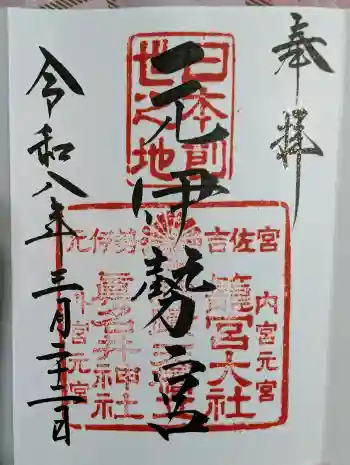 奉拝
日本前
世之地
元伊勢宮
元伊勢 吉佐宮
内宮元宮
籠宮大社
眞名井神社
外宮元宮
令和八年三月二十一日